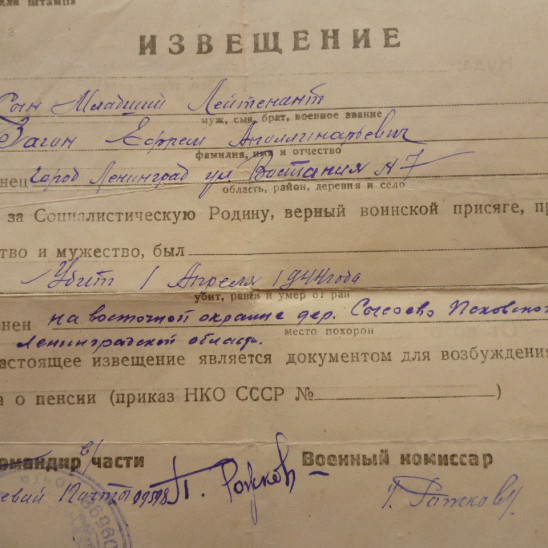 для штампа
ИЗВЕЩЕНИЕ
Сын Младший Лейтенант
муж, сын, брат, военное звание
Ефрем Аполлинарьевич
фамилия, имя и отчество
нец Город Ленинград ул Востания № 7
область, район, деревня и село
за Социалистическую Родину, верный воинской присяге, пр
ство и мужество, был
Убит 1 Апреля 1944 года
убит, ранен и умер от ран
онен на восточной окраине дер. Сысоево Псковско
место похорон
Ленинградской области.
астоящее извещение является документом для возбуждения
а о пенсии (приказ НКО СССР №)
омандир в/части Военный комиссар
евай Почта П. Рожков